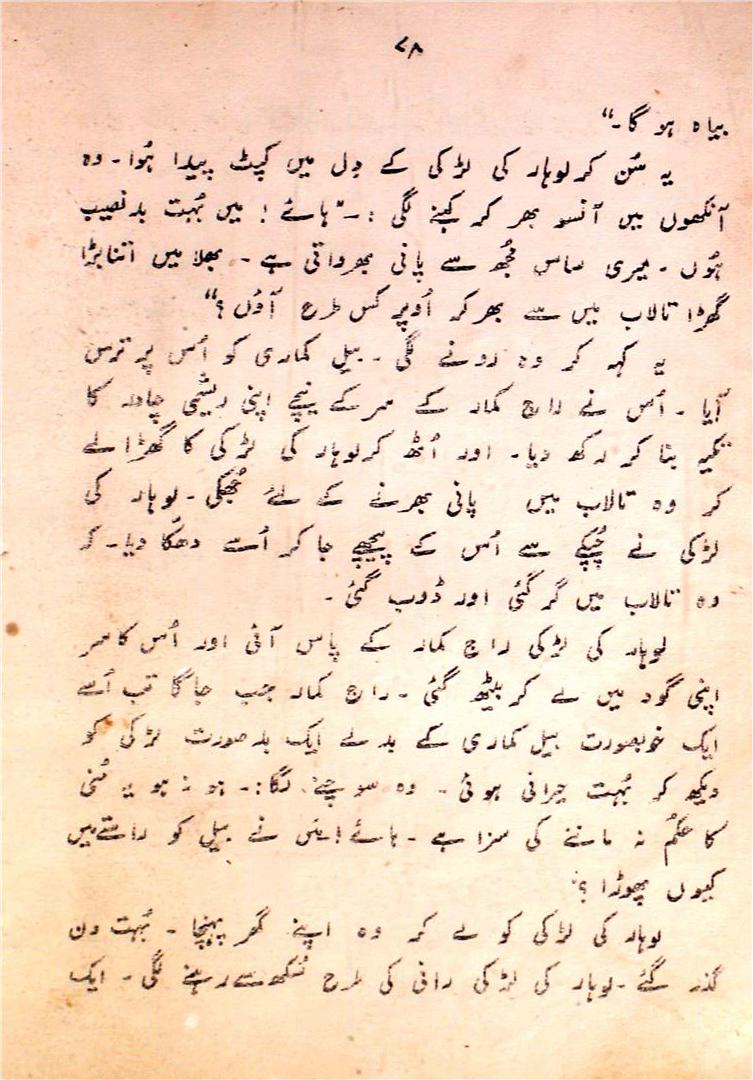 ۷۸
بیاہ ہو گا۔“
یہ سُن کر لوہار کی لڑکی کے دِل میں کپٹ پیدا ہُوا۔ وہ
آنکھوں میں آنسو بھر کر کہنے لگی :۔ ”ہائے ! میں بُہت بدنصیب
ہُوں ۔ میری ساس مُجھ سے پانی بھرواتی ہے ۔ بھلا میں اتنا بڑا
گھڑا تالاب میں سے بھر کر اُوپر کس طرح آؤں ؟“
یہ کہہ کر وہ رونے لگی ۔ بیل کماری کو اُس پر ترس
آیا ۔ اُس نے راج کمار کے سر کے نیچے اپنی ریشمی چادر کا
تکیہ بنا کر رکھ دیا۔ اور اُٹھ کر لوہار کی لڑکی کا گھڑا لے
کر وہ تالاب میں پانی بھرنے کے لئے جُھکی ۔ لوہار کی
لڑکی نے چُپکے سے اُس کے پیچھے جا کر اُسے دھکّا دیا۔ کر
وہ تالاب میں گر گئی اور ڈوب گئی ۔
لوہار کی لڑکی راج کمار کے پاس آئی اور اُس کا سر
اپنی گود میں لے کر بیٹھ گئی ۔ راج کمار جب جاگا تب اُسے
ایک خوبصورت بیل کماری کے بدلے ایک بدصورت لڑکی کو
دیکھ کر بُہت حیرانی ہوئی ۔ وہ سوچنے لگا:۔ ہو نہ ہو یہ مُنی
کا حکُم نہ ماننے کی سزا ہے ۔ ہائے! میں نے بیل کو راستے میں
کیوں پھوڑا ؟
لوہار کی لڑکی کو لے کر وہ اپنے گھر پہنچا ۔ بُہت دن
گذر گئے ۔ لوہار کی لڑکی رانی کی طرح سُکھ سے رہنے لگی ۔ ایک